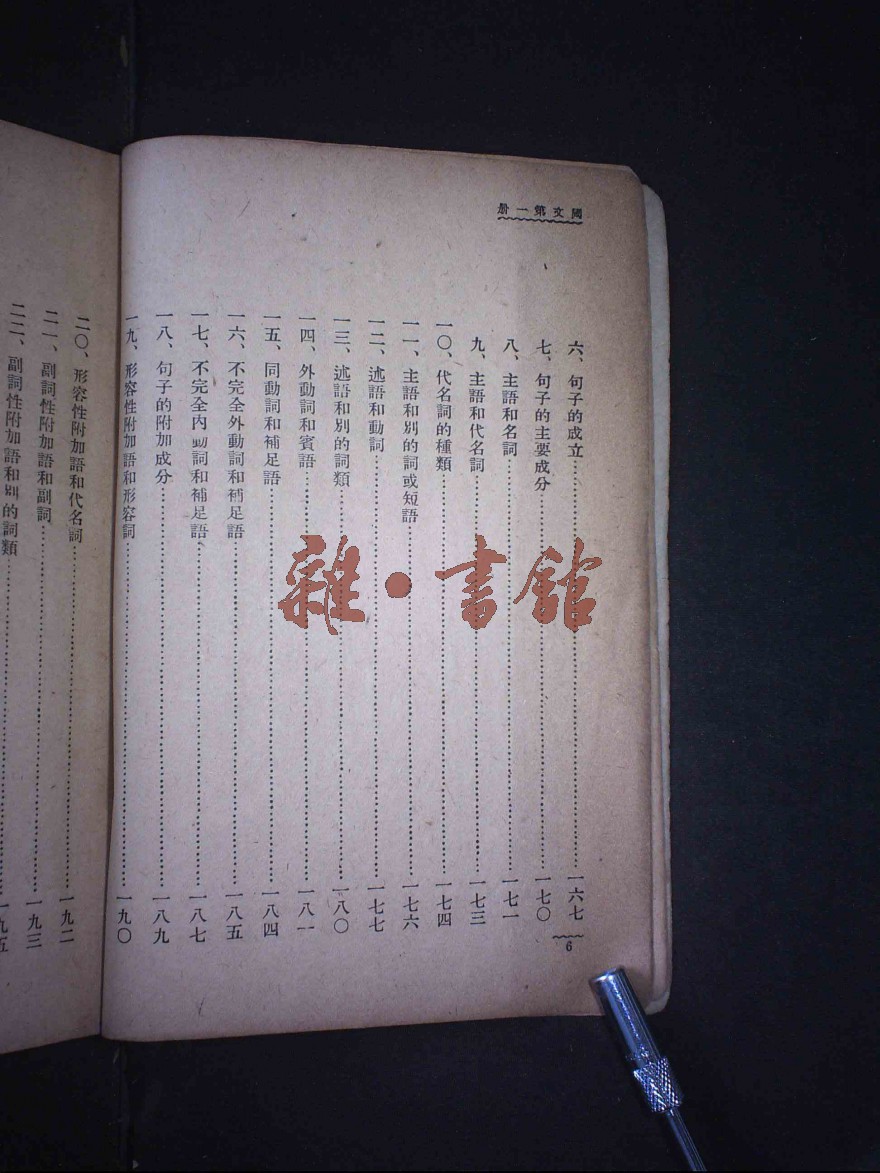 國文第一册
六、句子的成立……一六七
七、句子的主要成分……一七〇
八、主語和名詞……一七一
九、主語和代名詞……一七三
一〇、代名詞的種類……一七四
一一、主語和別的詞或短語……一七六
一二、述語和動詞……一七七
一三、述語和別的詞類……一八〇
一四、外動詞和賓語……一八一
一五、同動詞和補足語……一八四
一六、不完全外動詞和補足語……一八五
一七、不完全內動詞和補足語……一八七
一八、句子的附加成分……一八九
一九、形容性附加語和形容詞……一九〇
6
二〇、形容性附加語和代名詞……一九二
二一、副詞性附加語和副詞……一九三
二二、副詞性附加語和別的詞類……一九五
雜·書館